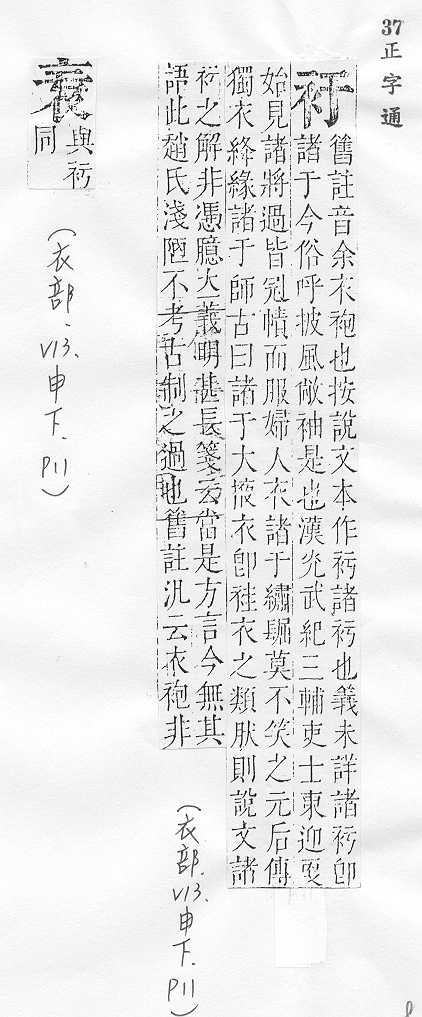 37 正字通
衧
舊註音余衣袍也按說文本作衧諸衧也義未詳諸衧卽
諸于今俗呼披風敞袖是也漢光武紀三輔吏士東迎更
始見諸將過皆冠幘而服婦人衣諸于繡镼莫不笑之元后傳
獨衣絳緣諸于師古曰諸于大掖衣卽袿衣之類肰則說文諸
衧之解非憑臆大義明甚長箋云當是方言今無其
語此趙氏淺陋不考古制之過也舊註汎云衣袍非
(衣部.V13.申下.P11)
與衧
同
(衣部.V13.申下.P11)